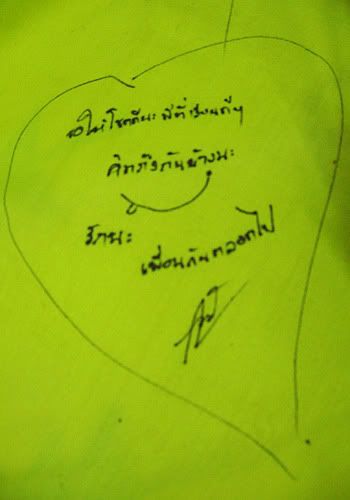 ขอให้โชคดีนะ มีที่เรียนดีๆ
คิดถึงกันบ้างนะ
รักนะ
เพื่อนกันตลอดไป